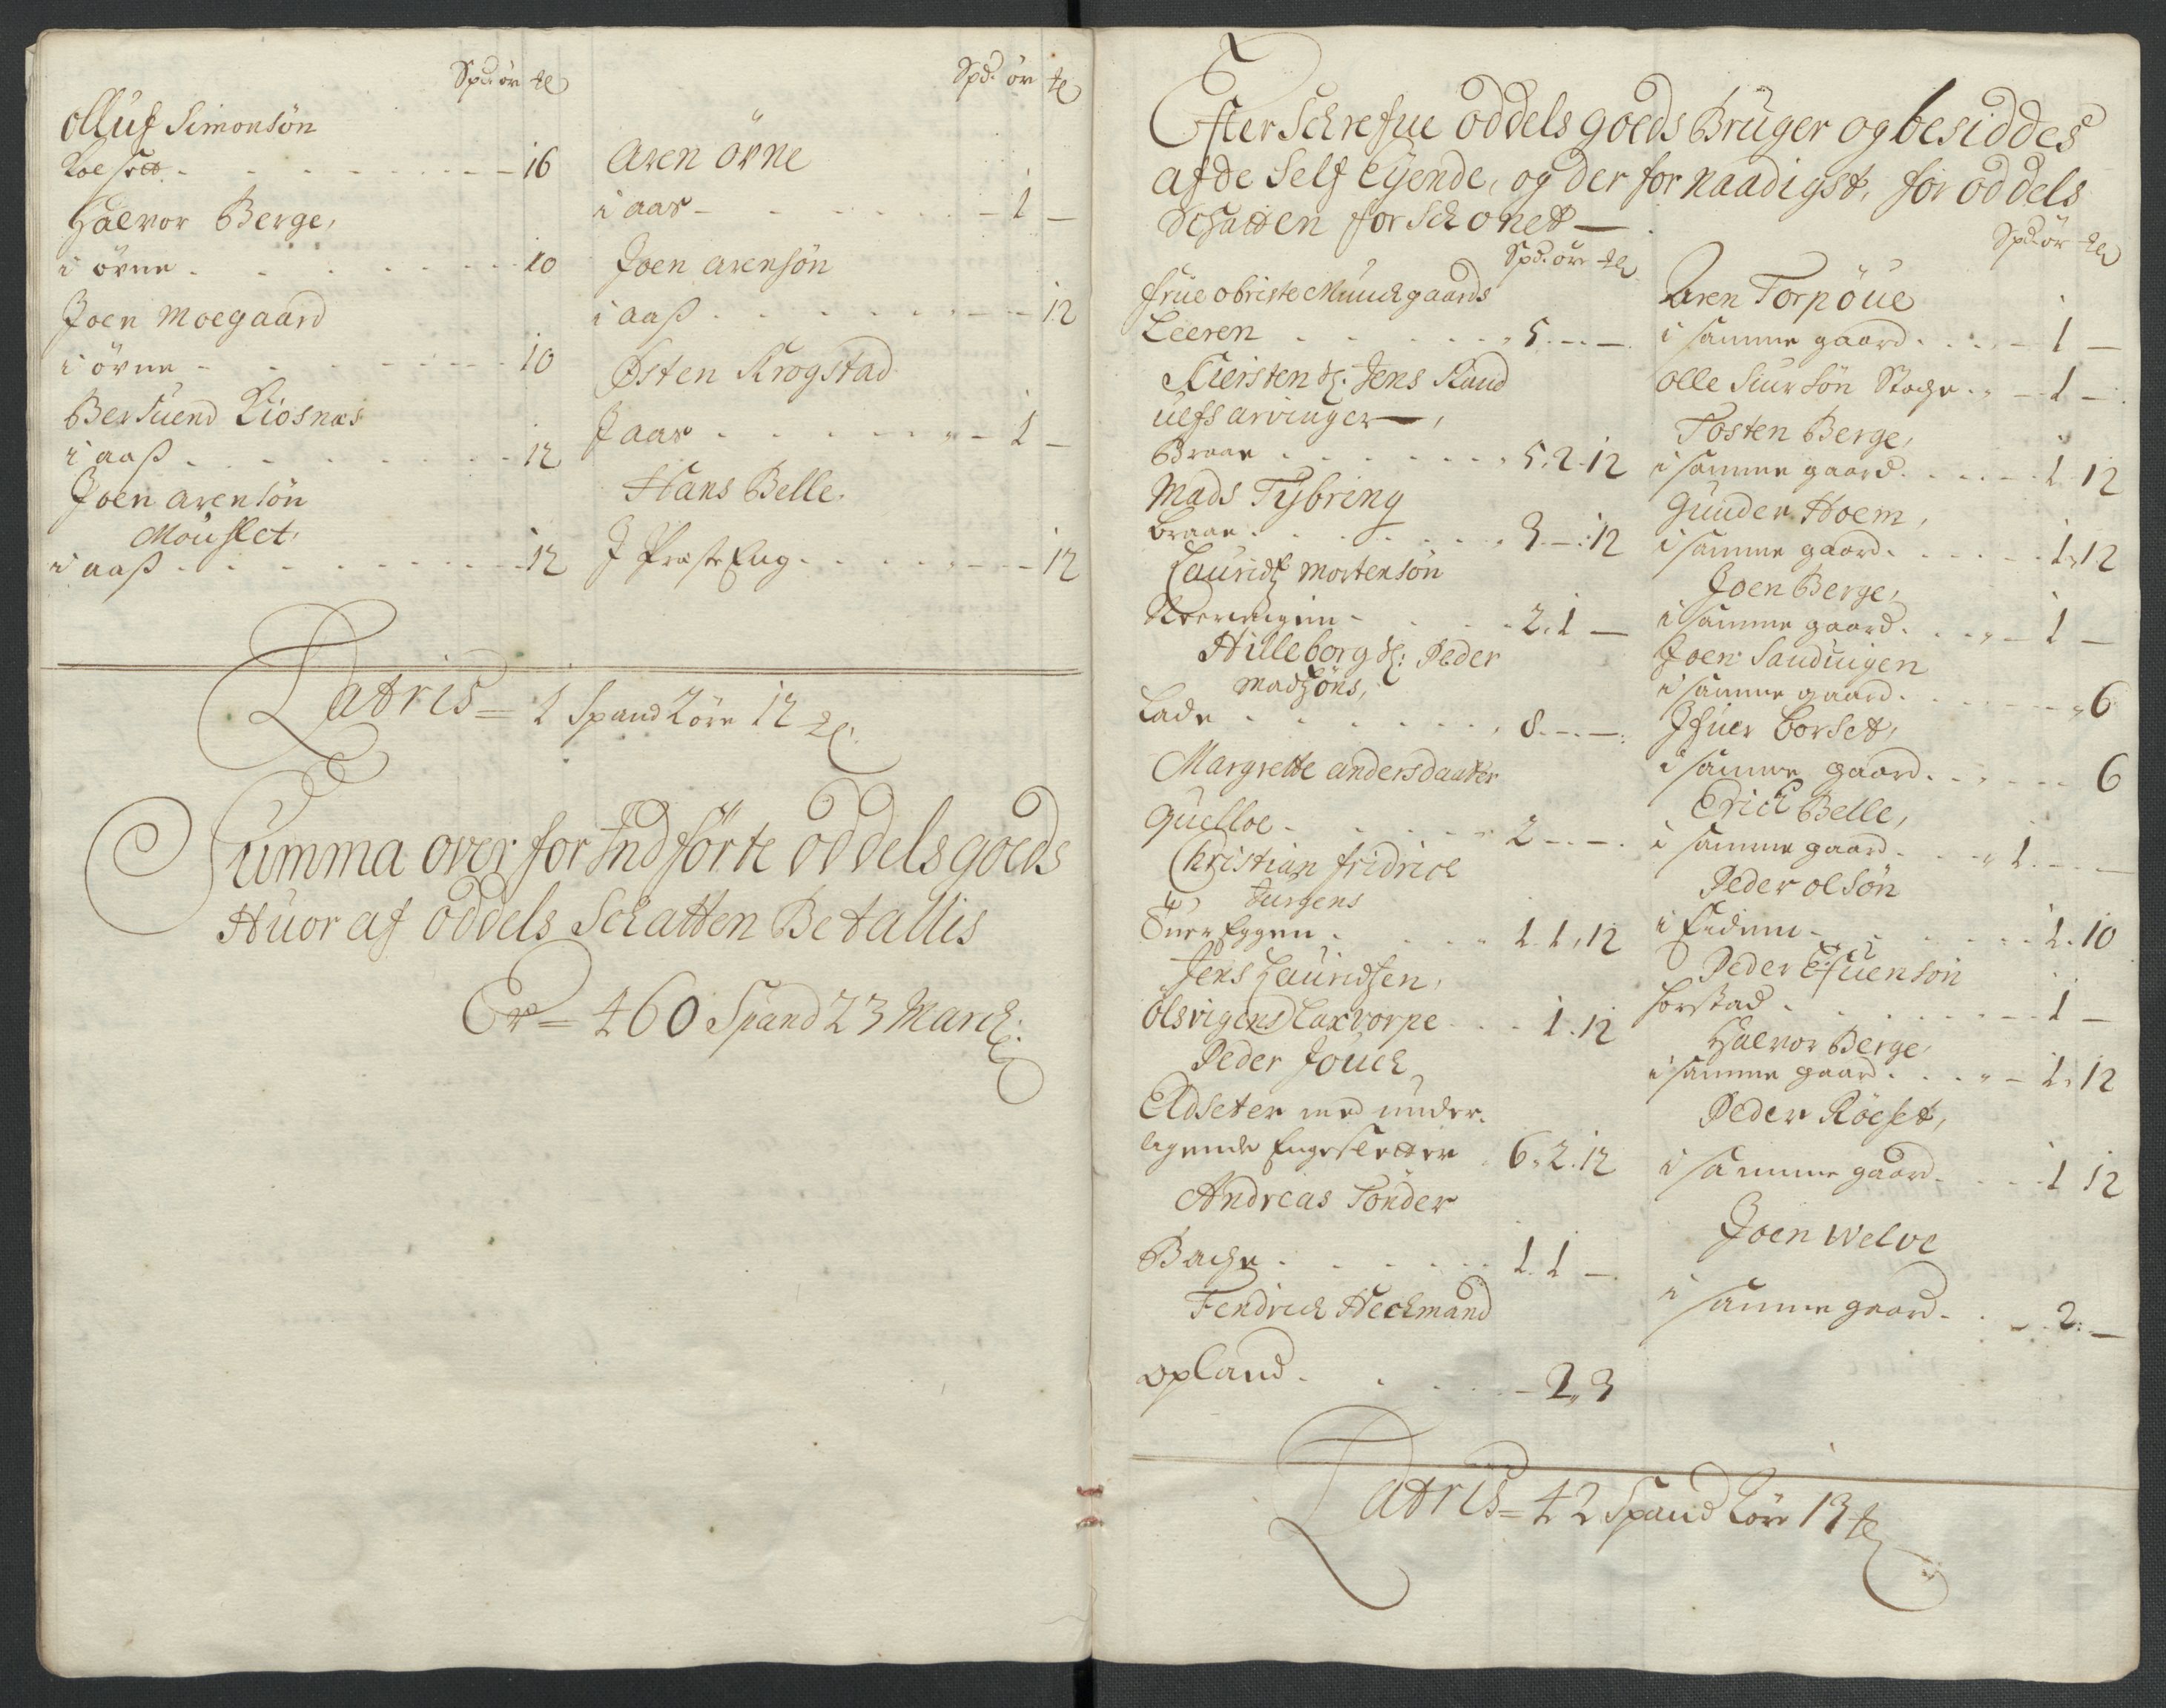 Spd: ør
olluf Simonsøn
16
Halvor Berge,
i øvne - 10
Joen Moegaard
i øvne - 10
Bersuend Kiosnæs
i aaß - 12
Joen arensøn
Mouslet,
i aaß - 12
Spd. ør
Aren övne
i aas - 1 -
Joen arensøn
i aaß - 12
Østen Krogstad
J aas - 1 -
Hans Belle
J Præste Eng - 12
Latris = 1 Spand 2 öre 12
Summa over for Indförte oddels goeds
Huor af oddels Schatten Betallis
Er = 460 Spand 23 March:
Efter Schrefne oddels goeds Brüger og besiddes
af de Self Eyende, og der for naadigst, for oddels
Schatten forschonet -
Spd. ör
Frue obriste Munchgaards
Leeren - 5 - -
Kiersten Sl. Jens Rand
uefs arvinger -,
Braae - 5. 2. 12
Mads Tybring
Braae - 3 - 12
Lauridtz Mortensön
2. 1 -
Hilleborg Sl: Peder
Madsöns,
Lade - 8 - -
Margrette andersdaatter
Quelloe - 2 - -
Christian fridrich
Jurgens
Eggen - 1. 1. 12
Jens Lauridsen,
Olsvigens Laxvorpe - 1. 12
Peder Jouch
Eldseter med under-
ligende Engesletter 6. 2. 12
Andreas Tönder
Bache - 1. 1 -
Fendrich Heckmand
opland - 2, 3
Spd. ör
Aren Torpöue
i samme gaard - 1 -
Olle Siursön - 1 -
Tosten Berge,
i samme gaard - 1 12
Gunder Hoem,
i samme gaard - 1. 12
Joen Berge,
i samme gaard - 1 -
Joen Sanduigen
i samme gaard - 6
Ifuer Borset,
i samme gaard - 6
Erich Belle,
i samme gaard - 1 - -
Peder olsön
1. 10
Peder Efuensön
1 -
Halvor Berge,
i samme gaard - 1. 12
Peder Röeset,
i samme gaard - 1 12
Joen Welve
i samme gaard - 2 -
Latris = 42 Spand 2 öre 13